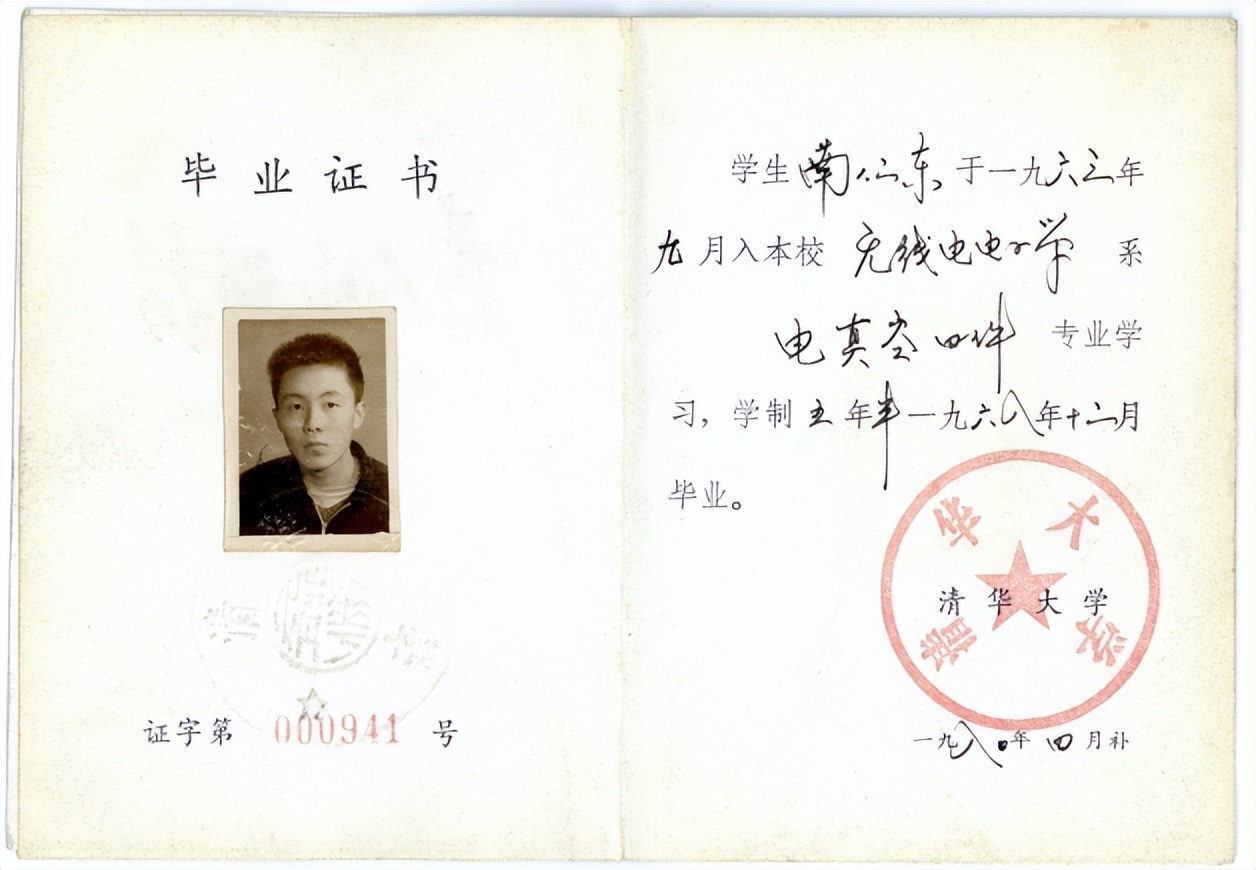 毕业证书
证字第 000941 号
学生南仁东于一九六三年
九月入本校 无线电电子学 系
电真空器件 专业学
习，学制五年半一九六八年十二月
毕业。
清华大学
清华大学
一九八〇年四月补